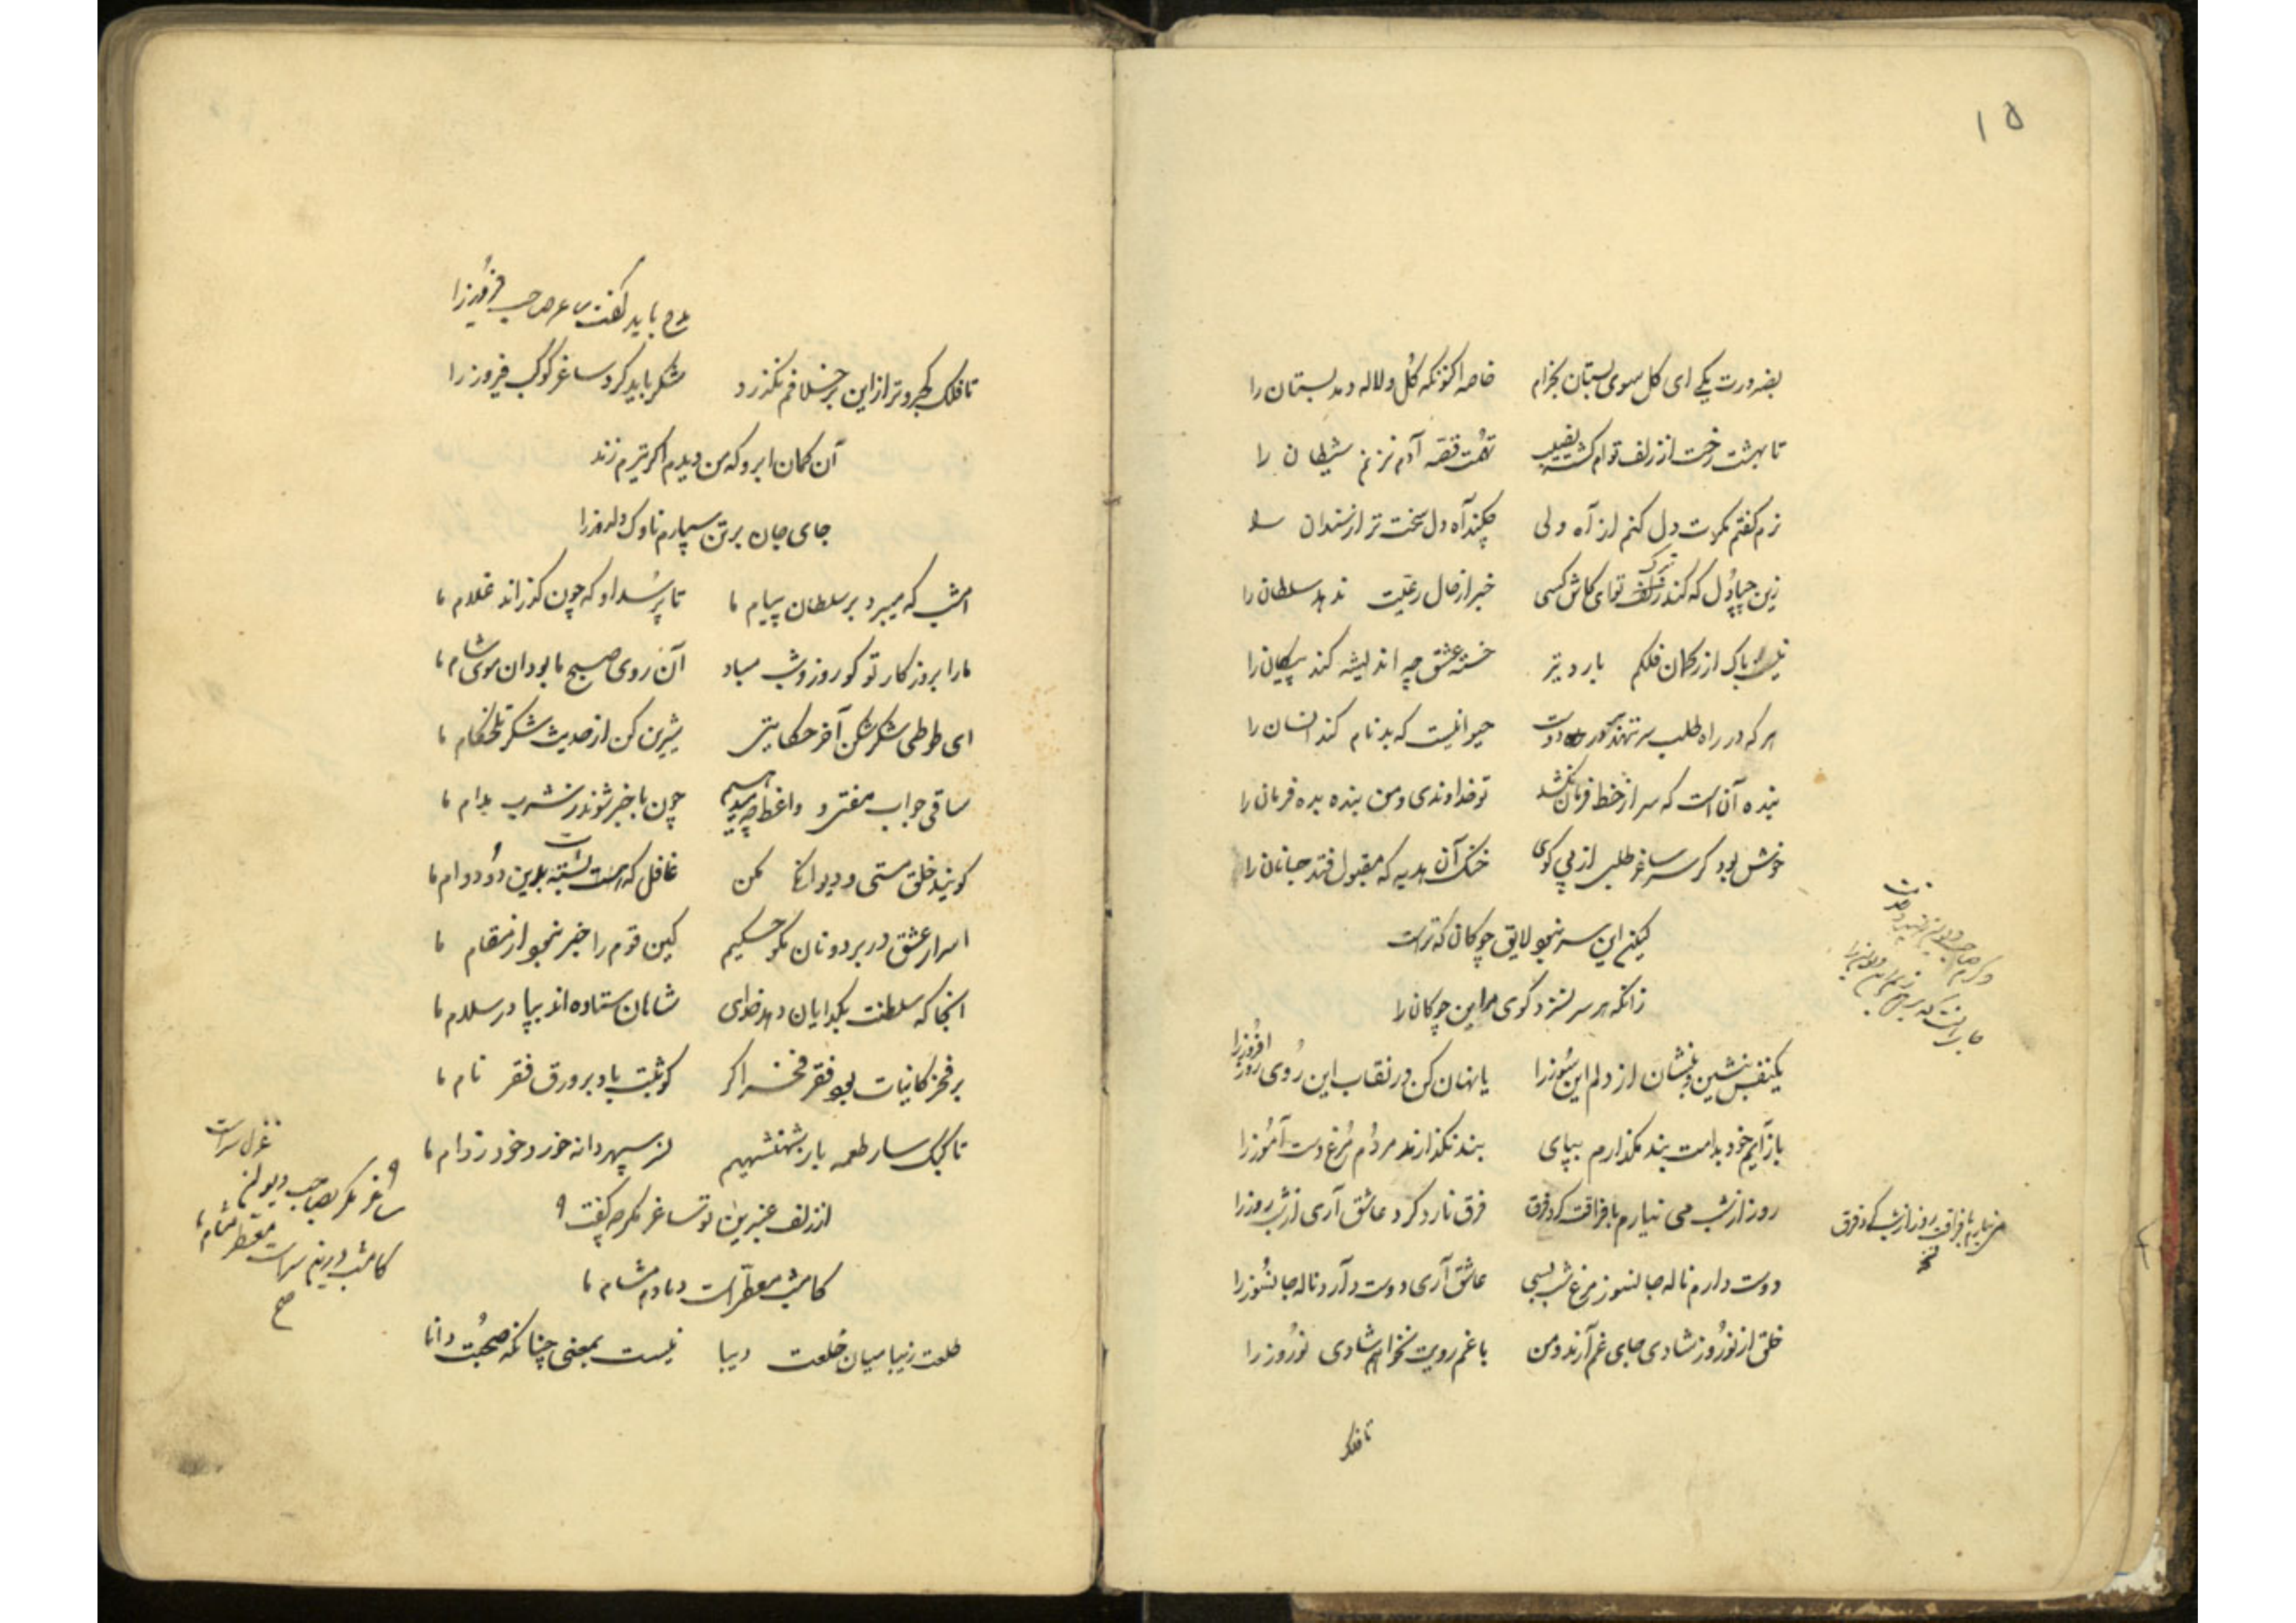 ۱۵
بضرورت یکی ای کل سوی بستان بخرام خاصه اکنونکه کل ولاله دمد بستان را
تا بهشت رخت از زلف توام کشته نصیب تهمت قصه آدم نزنم شیطان را
نرم کفتم مکرت دل کنم از آه ولی چکند آه دل سخت تر از سندان را
زین چپاول که کند ترک تو ای کاش کسی خبر از حال رعیت ندهد سلطان را
باک از کمان فلکم بارد تیر خسته عشق چه اندیشه کند پیکان را
هر که در راه طلب سر ننهد دوست حیوانیست که بدنام کند انسان را
بنده آن است که سر از خط فرمان نکشد تو خداوندی و من بنده بده فرمان را
خوش بود کر سر ساغر طلبی از پی کوی خنک آن هدیه که مقبول فتد جانان را
لیکن این سر نبود لایق چوکان که تراست
زانکه هر سر نسزد کوی مر این چوکان را
یکنفس بنشین و بنشان از دلم این سوز را یا نهان کن در نقاب این روی روز افروز را
باز آیم خود بدامت بند مکذارم بپای بند نکذارند مردم مرغ دست آموز را
روز از شب می نیارم با فراقت کرد فرق فرق نارد کرد عاشق آری از شب روز را
می نیارم با فراقت روز از شب کرد فرق
دوست دارم ناله جانسوز مرغ شب بسی عاشق آری دوست دارد ناله جانسوز را
خلق از نوروز شادی جای غم آرند و من با غم رویت نخواهم شادی نوروز را
تا فلک
مدح باید کفت ساغر صاحب فیروز را
تا فلک کجرو تر از این بر خلافم نکذرد شکر باید کرد ساغر کوکب فیروز را
آن کمان ابرو که من دیدم اکر تیرم زند
جای جان بر تن سپارم ناوک دلدوز را
امشب که میبرد بر سلطان پیام ما تا پرسد او که چون کذراند غلام ما
ما را بروزکار تو کو روز و شب مباد آن روی صبح ما بود ان موی شام ما
ای طوطی شکر شکن آخر حکایتی شیرین کن از حدیث شکر تلخکام ما
ساقی جواب مفتی و واعظ چه میدهیم چون با خبر شوند ز شرب مدام ما
کویند خلق مستی و دیوانکی مکن غافل که بسته است بدین دو دوام ما
اسرار عشق در بر دونان مکو حکیم کین قوم را خبر نبود از مقام ما
انجا که سلطنت بکدایان دهد خدای شاهان ستاده اند بپا در سلام ما
بر فخر کاینات بود فقر فخر اکر کو ثبت باد بر ورق فقر نام ما
تا کبک سار طعمه باز شهنشهیم نسر سپهر دانه خورد خود ز دام ما
از زلف عنبرین تو ساغر مکر چه کفت
کامشب معطر است دمادم مشام ما
غزل سراست
ساغر مکر بصاحب دیوان
کامشب در بزم سراست معطر مشام ما
صح
طلعت زیبا میان خلعت دیبا نیست بمعنی چنانکه صحبت دانا